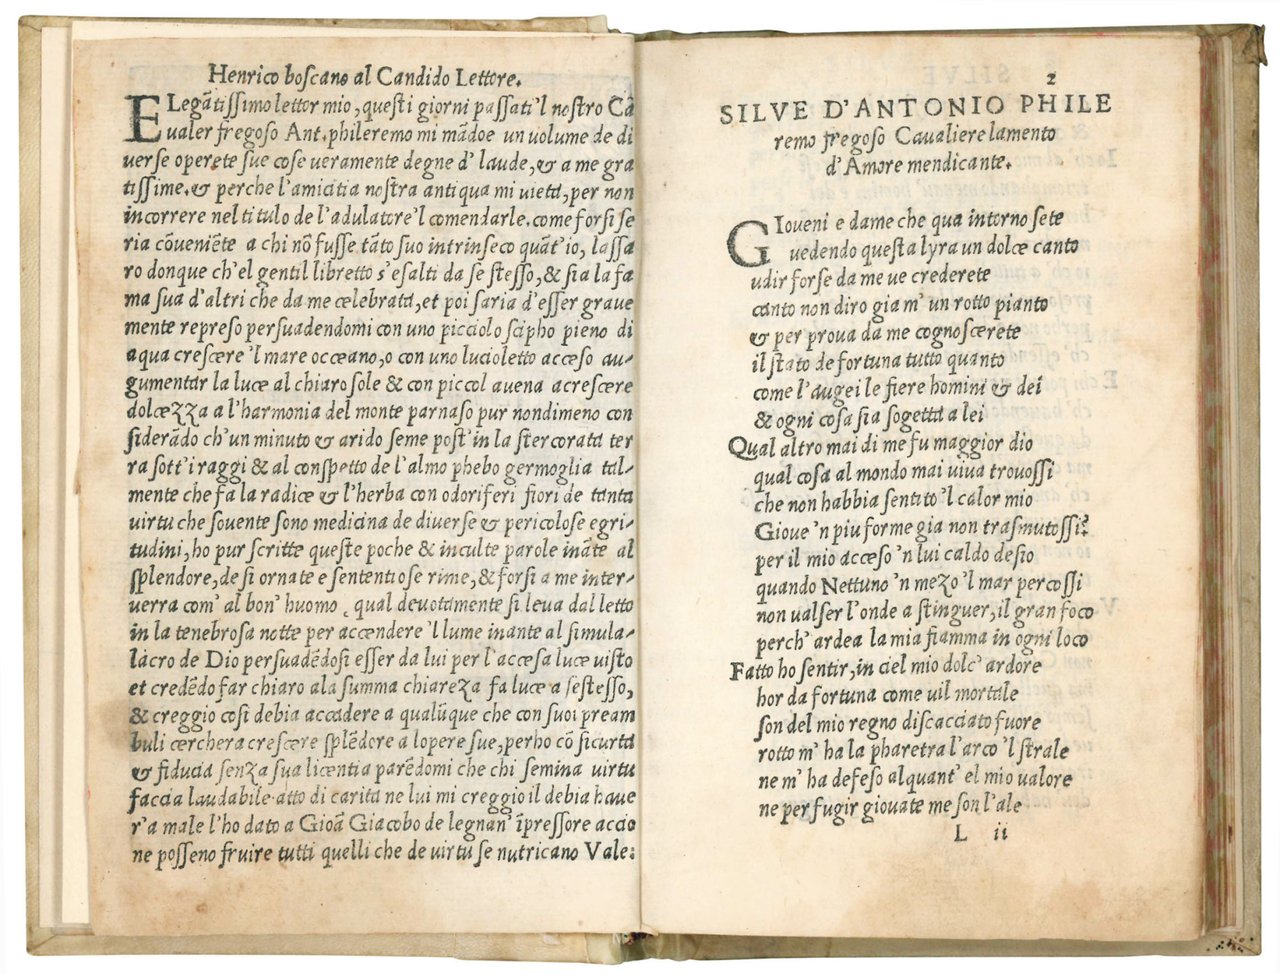 Henrico boſcano al Candido Lettore.
ELegãtiſſimo lettor mio, queſti giorni paſſati 'l noſtro Cã
ualer fregoſo Ant. phileremo mi mãdoe un uolume de di
uerſe operete ſue coſe ueramente degne d' laude, & a me gra
tiſſime. & perche l'amicitia noſtra antiqua mi uieta, per non
incorrere nel titulo de l'adulatore 'l comendarle. come forſi ſe
ria cõueniẽte a chi nõ fuſſe tãto ſuo intrinſeco quãt' io, laſſa
ro donque ch'el gentil libretto s'eſalti da ſe ſteſſo, & ſia la fa
ma ſua d'altri che da me celebrata, et poi ſaria d'eſſer graue
mente repreſo perſuadendomi con uno picciolo ſcipho pieno di
aqua creſcere 'l mare occeano, o con uno lucioletto acceſo au-
gumentar la luce al chiaro ſole & con piccol auena acreſcere
dolcezza a l'harmonia del monte parnaſo pur nondimeno con
ſiderãdo ch'un minuto & arido ſeme poſt' in la ſtercorata ter
ra ſott' i raggi & al conſpetto de l'almo phebo germoglia tal-
mente che fa la radice & l'herba con odoriferi fiori de tanta
uirtu che ſouente ſono medicina de diuerſe & pericoloſe egri-
tudini, ho pur ſcritte queſte poche & inculte parole inãte al
ſplendore, de ſi ornate e ſententioſe rime, & forſi a me inter-
uerra com' al bon' huomo qual deuotamente ſi leua dal letto
in la tenebroſa notte per accendere 'l lume inante al ſimula-
lacro de Dio perſuadẽdoſi eſſer da lui per l'acceſa luce uiſto
et credẽdo far chiaro ala ſumma chiareza fa luce a ſeſteſſo,
& creggio coſi debia accadere a qualũque che con ſuoi pream
buli cercherа creſcere ſplẽdore a lopere ſue, perho cõ ſicurta
& fiducia ſenza ſua licentia parẽdomi che chi ſemina uirtu
faccia laudabile atto di carita ne lui mi creggio il debia haue
r'a male l'ho dato a Gioã Giacobo de legnan' ĩpreſſore accio
ne poſſeno fruire tutti quelli che de uirtu ſe nutricano Vale:
2
SILVE D'ANTONIO PHILE
remo fregoſo Caualiere lamento
d'Amore mendicante.
GIoueni e dame che qua intorno ſete
uedendo queſta lyra un dolce canto
udir forſe da me ue crederete
canto non diro gia m' un rotto pianto
& per proua da me cognoſcerete
il ſtato de fortuna tutto quanto
come l'augei le fiere homini & dei
& ogni coſa ſia ſogetta a lei
Qual altro mai di me fu maggior dio
qual coſa al mondo mai uiua trouoſſi
che non habbia ſentito 'l calor mio
Gioue 'n piu forme gia non trasmutoſſi?
per il mio acceſo 'n lui caldo deſio
quando Nettuno 'n mezo 'l mar percoſſi
non ualſer l'onde a ſtinguer, il gran foco
perch' ardea la mia fiamma in ogni loco
Fatto ho ſentir, in ciel mio dolc' ardore
hor da fortuna come uil mortale
ſon del mio regno diſcacciato fuore
rotto m' ha la pharetra l'arco 'l ſtrale
ne m' ha defeſo alquant' el mio ualore
ne per fugir giouate me ſon l'ale
L ii